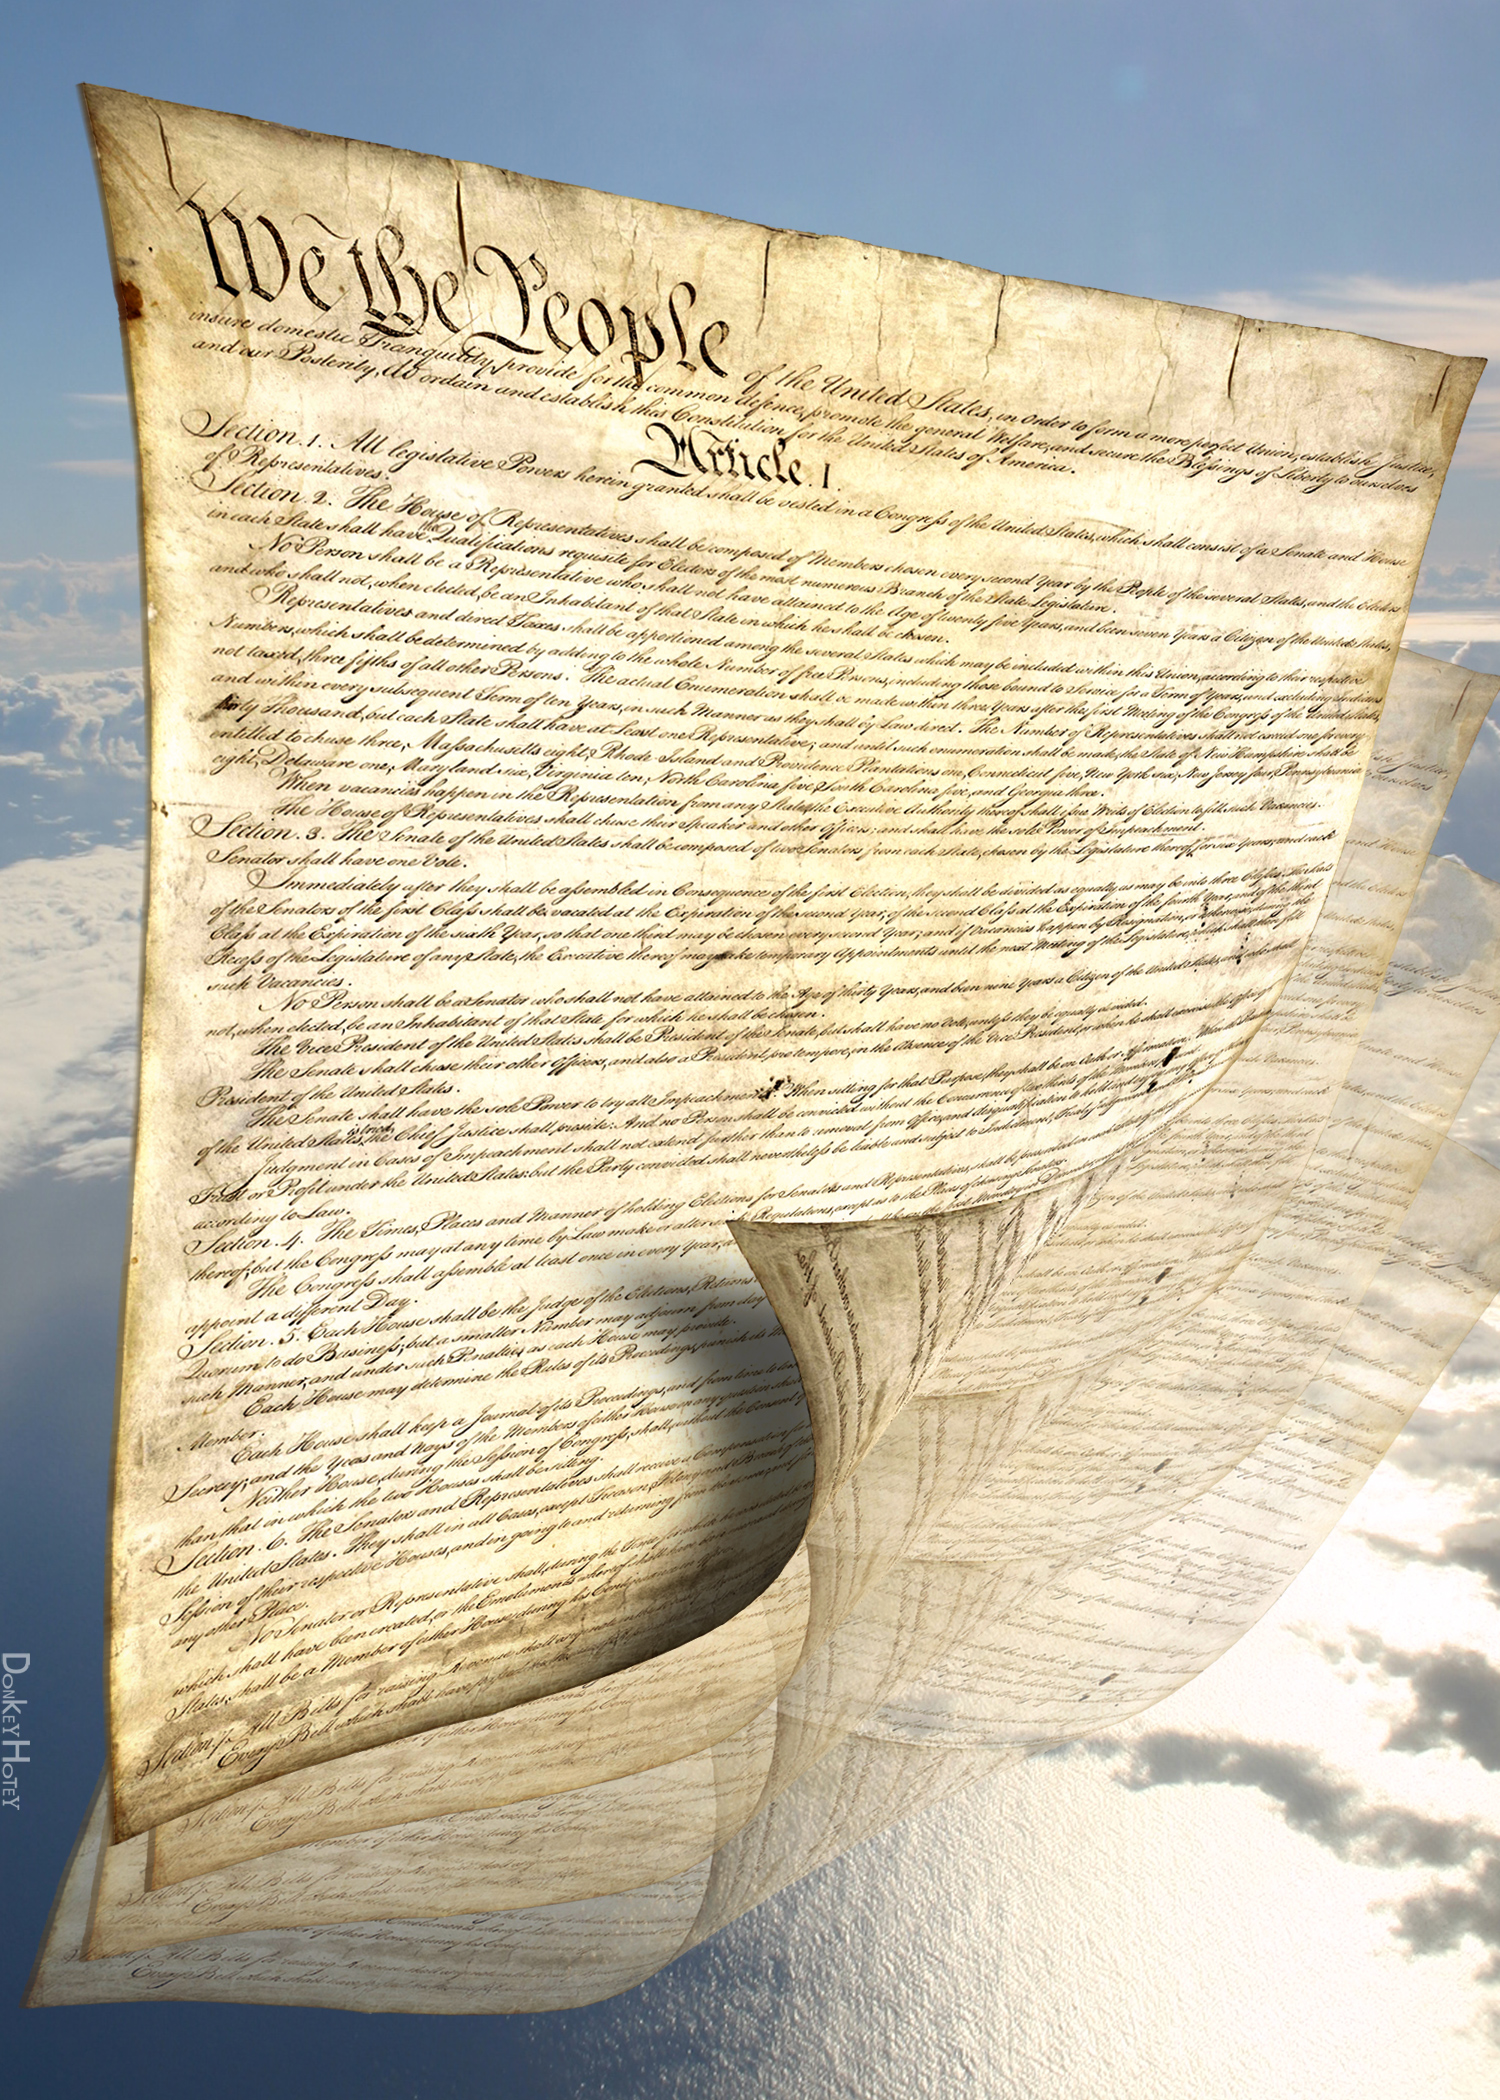 We the People of the United States, in Order to form a more perfect Union, establish Justice,
insure domestic Tranquility, provide for the common defence, promote the general Welfare, and secure the Blessings of Liberty to ourselves
and our Posterity, do ordain and establish this Constitution for the United States of America.
Article. I.
Section. 1. All legislative Powers herein granted shall be vested in a Congress of the United States, which shall consist of a Senate and House
of Representatives.
Section. 2. The House of Representatives shall be composed of Members chosen every second Year by the People of the several States, and the Electors
in each State shall have the Qualifications requisite for Electors of the most numerous Branch of the State Legislature.
No Person shall be a Representative who shall not have attained to the Age of twenty five Years, and been seven Years a Citizen of the United States,
and who shall not, when elected, be an Inhabitant of that State in which he shall be chosen.
Representatives and direct Taxes shall be apportioned among the several States which may be included within this Union, according to their respective
Numbers, which shall be determined by adding to the whole Number of free Persons, including those bound to Service for a Term of Years, and excluding Indians
not taxed, three fifths of all other Persons. The actual Enumeration shall be made within three Years after the first Meeting of the Congress of the United States,
and within every subsequent Term of ten Years, in such Manner as they shall by Law direct. The Number of Representatives shall not exceed one for every
thirty Thousand, but each State shall have at Least one Representative; and until such enumeration shall be made, the State of New Hampshire shall be
entitled to chuse three, Massachusetts eight, Rhode Island and Providence Plantations one, Connecticut five, New York six, New Jersey four, Pennsylvania
eight, Delaware one, Maryland six, Virginia ten, North Carolina five, South Carolina five, and Georgia three.
When vacancies happen in the Representation from any State, the Executive Authority thereof shall issue Writs of Election to fill such Vacancies.
The House of Representatives shall chuse their Speaker and other Officers; and shall have the sole Power of Impeachment.
Section. 3. The Senate of the United States shall be composed of two Senators from each State, chosen by the Legislature thereof, for six Years; and each
Senator shall have one Vote.
Immediately after they shall be assembled in Consequence of the first Election, they shall be divided as equally as may be into three Classes. The Seats
of the Senators of the first Class shall be vacated at the Expiration of the second Year, of the second Class at the Expiration of the fourth Year, and of the third
Class at the Expiration of the sixth Year, so that one third may be chosen every second Year; and if Vacancies happen by Resignation, or otherwise, during the
Recess of the Legislature of any State, the Executive thereof may make temporary Appointments until the next Meeting of the Legislature, which shall then fill
such Vacancies.
No Person shall be a Senator who shall not have attained to the Age of thirty Years, and been nine Years a Citizen of the United States, and who shall
not, when elected, be an Inhabitant of that State for which he shall be chosen.
The Vice President of the United States shall be President of the Senate, but shall have no Vote, unless they be equally divided.
The Senate shall chuse their other Officers, and also a President pro tempore, in the Absence of the Vice President, or when he shall exercise the Office of
President of the United States.
The Senate shall have the sole Power to try all Impeachments. When sitting for that Purpose, they shall be on Oath or Affirmation. When the President
of the United States is tried, the Chief Justice shall preside: And no Person shall be convicted without the Concurrence of two thirds of the Members present.
Judgment in Cases of Impeachment shall not extend further than to removal from Office, and disqualification to hold and enjoy any Office of honor,
Trust or Profit under the United States: but the Party convicted shall nevertheless be liable and subject to Indictment, Trial, Judgment
according to Law.
Section. 4. The Times, Places and Manner of holding Elections for Senators and Representatives, shall be prescribed in each State by
thereof; but the Congress may at any time by Law make or alter such Regulations, except as to the Places of chusing Senators.
The Congress shall assemble at least once in every Year,
appoint a different Day.
Section. 5. Each House shall be the Judge of the Elections, Returns
Quorum to do Business; but a smaller Number may adjourn from day
such Manner, and under such Penalties as each House may provide.
Each House may determine the Rules of its Proceedings, punish its
Member.
Each House shall keep a Journal of its Proceedings, and from time to time
Secrecy; and the Yeas and Nays of the Members of either House on any question shall
Neither House, during the Session of Congress, shall, without the Consent of
than that in which the two Houses shall be sitting.
Section. 6. The Senators and Representatives shall receive a Compensation for
the United States. They shall in all Cases, except Treason, Felony and Breach of the
Session of their respective Houses, and in going to and returning from the same;
any other Place.
No Senator or Representative shall, during the Time for which he was elected,
which shall have been created, or the Emoluments whereof shall have been
States, shall be a Member of either House during his Continuance in Office.
Section. 7. All Bills for raising Revenue shall
Every Bill which shall have passed
DonkeyHotey